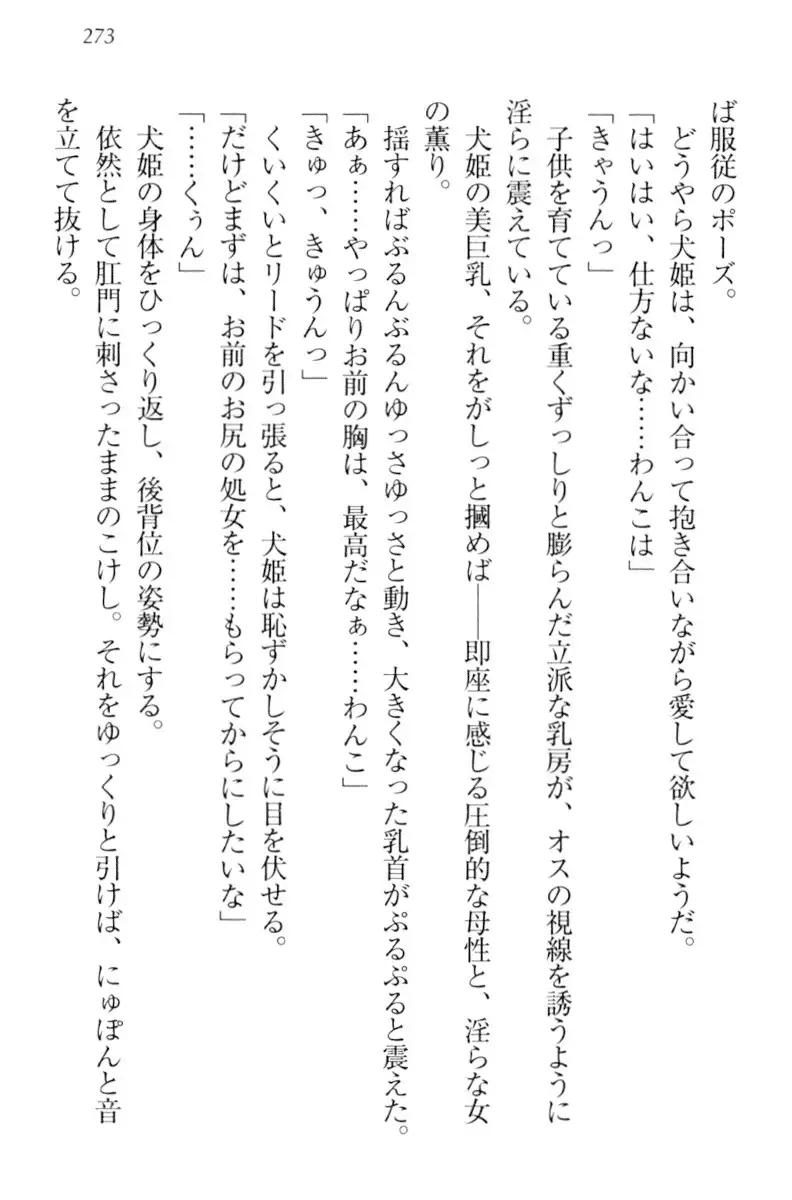 273
ば服従のポーズ。
どうやら犬姫は、向かい合って抱き合いながら愛して欲しいようだ。
「はいはい、仕方ないな……わんこは」
「きゃうんっ」
子供を育てている重くずっしりと膨らんだ立派な乳房が、オスの視線を誘うように
淫らに震えている。
犬姫の美巨乳、それをがしっと摑めば――即座に感じる圧倒的な母性と、淫らな女
の薫り。
揺すればぶるんぶるんゆっさゆっさと動き、大きくなった乳首がぷるぷると震えた。
「あぁ……やっぱりお前の胸は、最高だなぁ……わんこ」
「きゅっ、きゅうんっ」
くいくいとリードを引っ張ると、犬姫は恥ずかしそうに目を伏せる。
「だけどまずは、お前のお尻の処女を……もらってからにしたいな」
「……くぅん」
犬姫の身体をひっくり返し、後背位の姿勢にする。
依然として肛門に刺さったままのこけし。それをゆっくりと引けば、にゅぽんと音
を立てて抜ける。